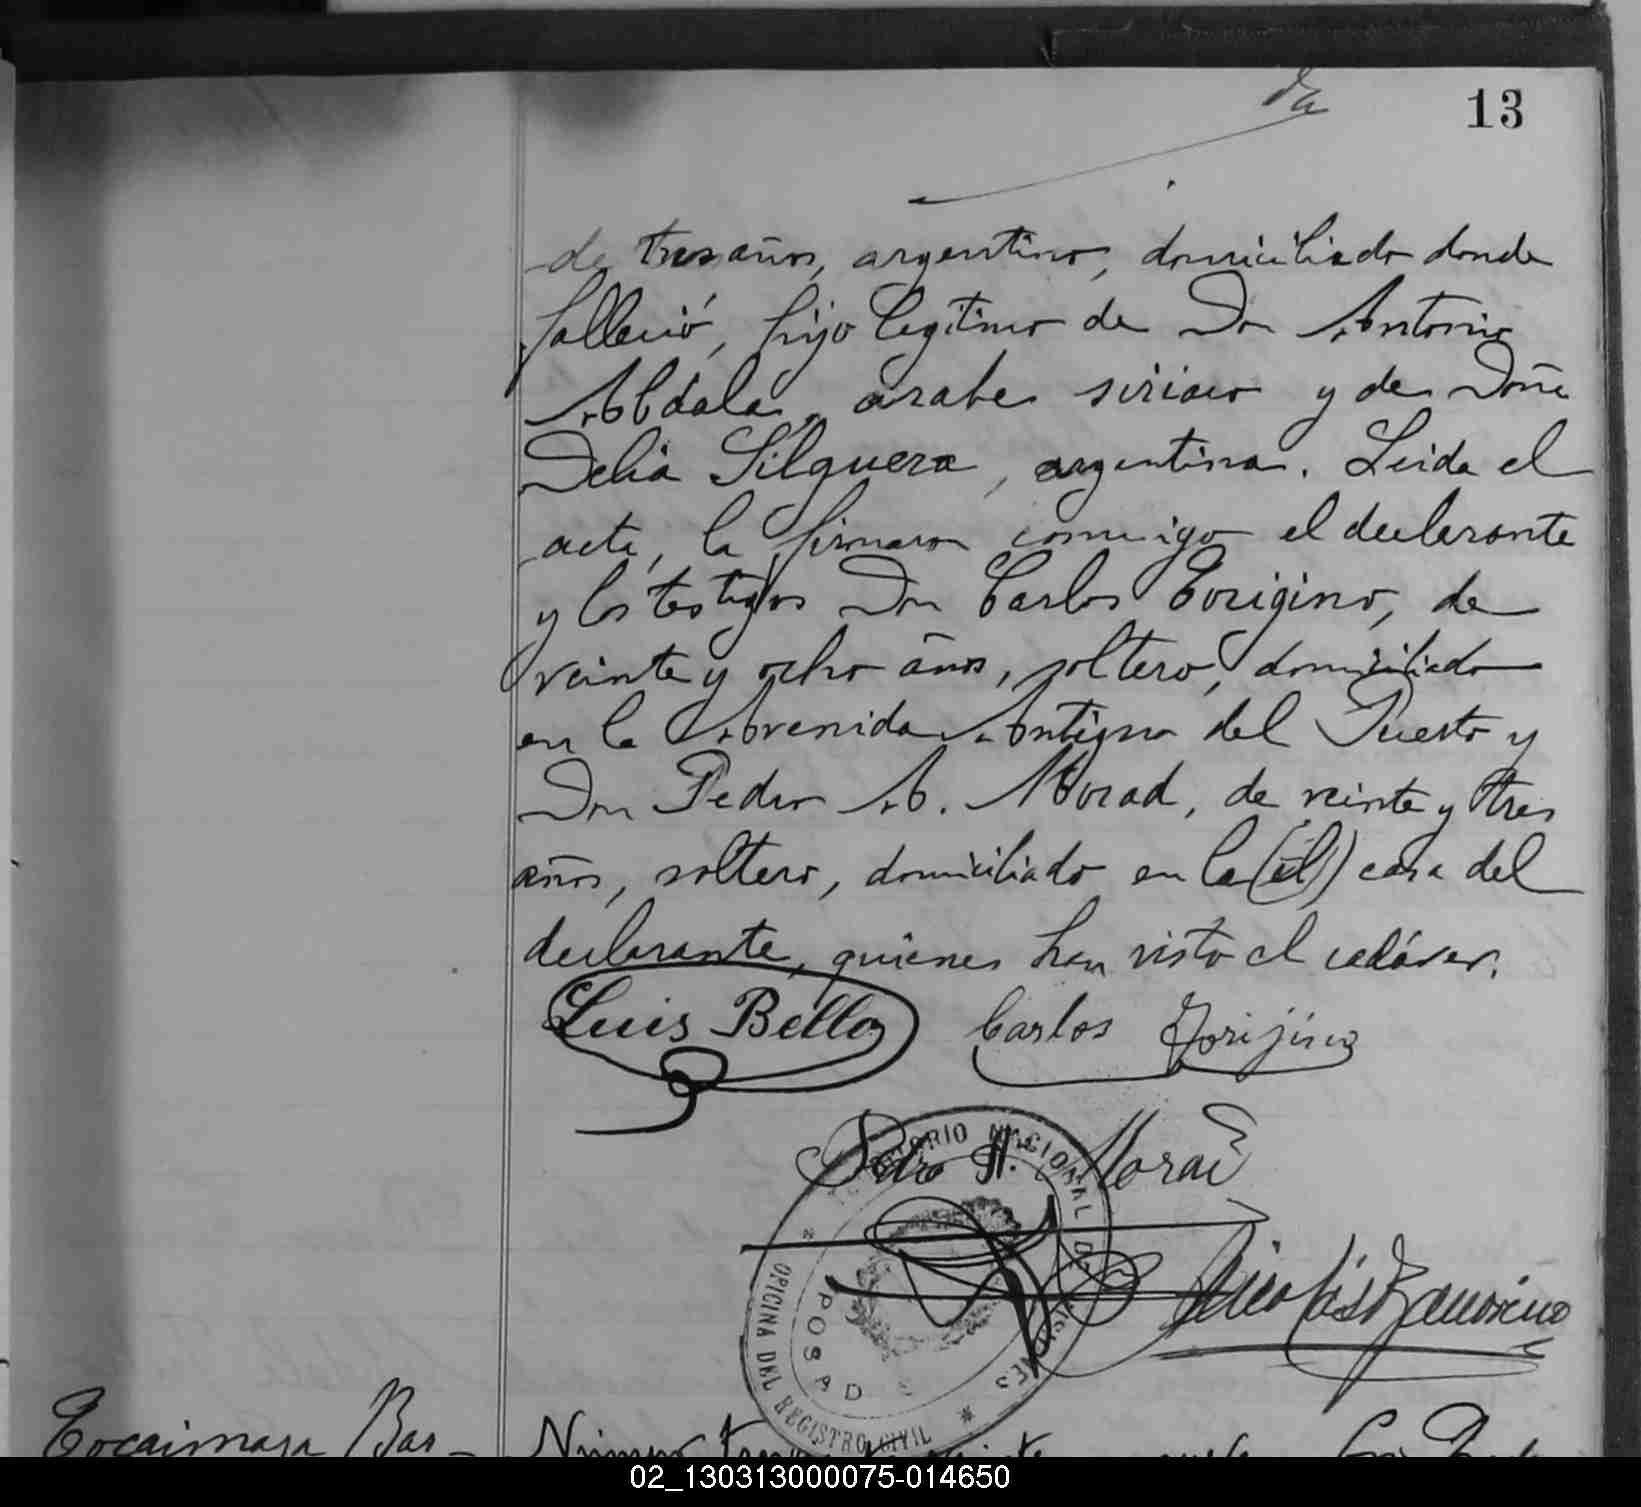 13
de tres años, argentino, domiciliado donde
falleció, hijo legitimo de Don Antonio
Abdala, arabe siriaco y de Doña
Delia Silguera, argentina. Leida el
acta, la firmaron conmigo el declarante
y los testigos Don Carlos Gorigino, de
veinte y ocho años, soltero, domiciliado
en la Avenida Antigua del Puerto y
Don Pedro A. Morad, de veinte y tres
años, soltero, domiciliado en la (el) casa del
declarante, quienes han visto el cadáver.
Luis Bello Carlos Gorijino
Pedro A. Morad
TERRITORIO NACIONAL DE MISIONES
OFICINA DEL REGISTRO CIVIL
POSADAS
Nicolás
Bar-
Número
02_130313000075-014650